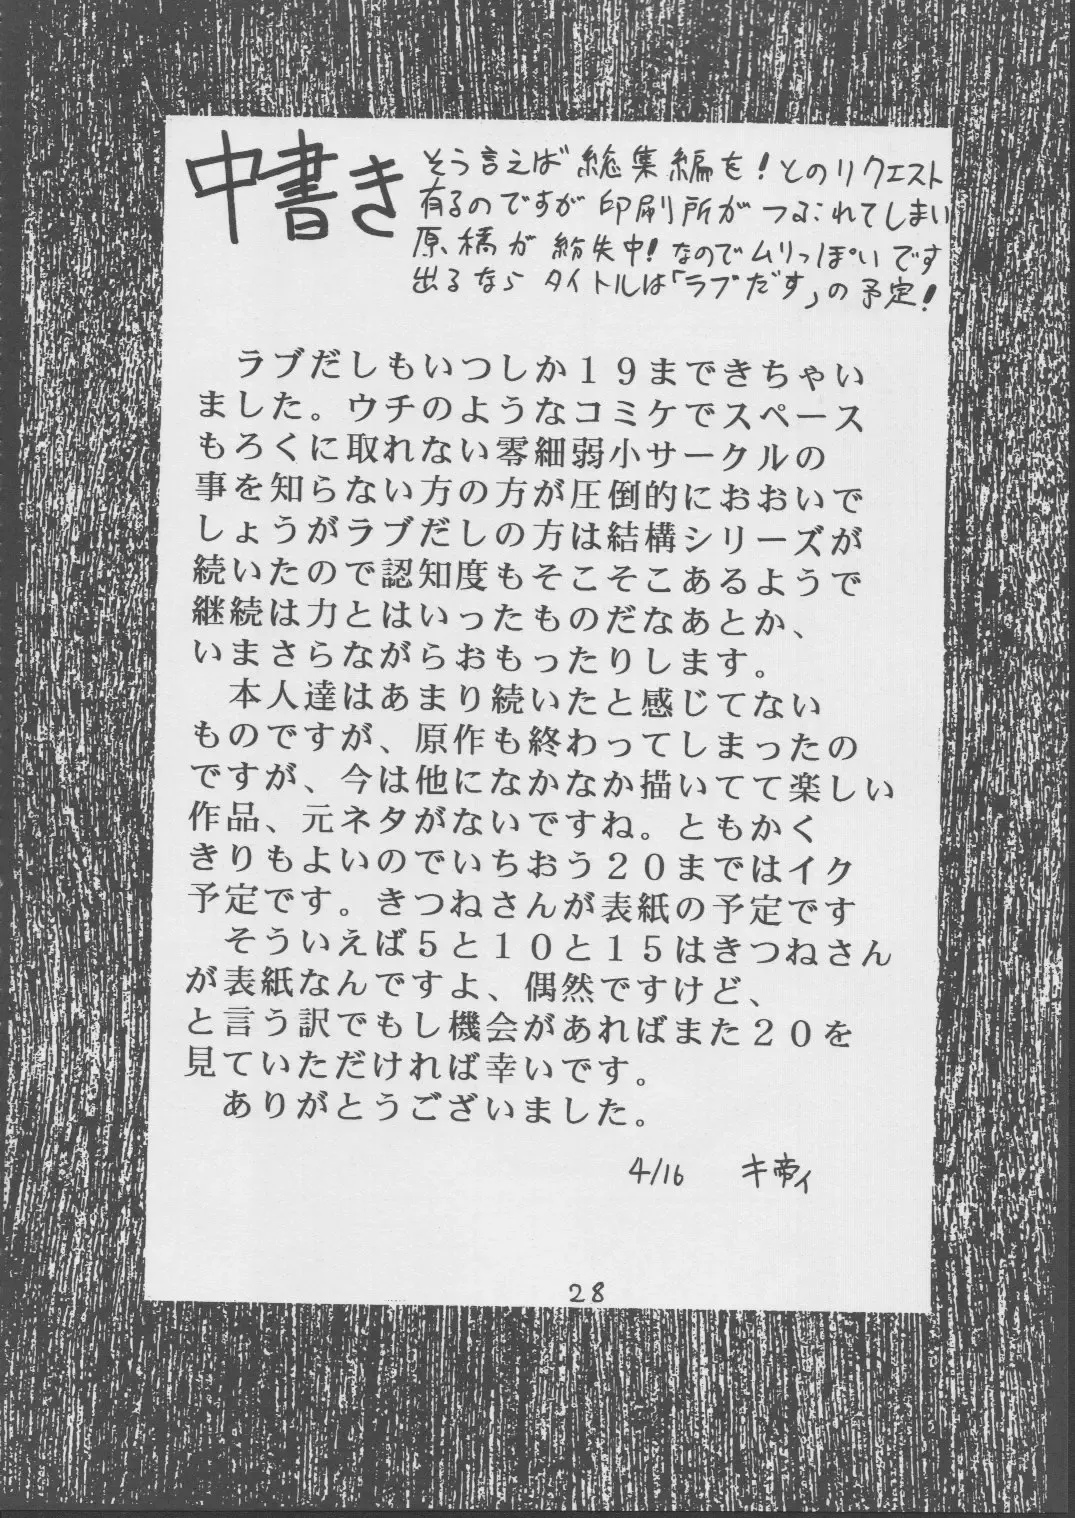 中書き
そう言えば総集編を！とのリクエスト
有るのですが印刷所がつぶれてしまい
原稿が紛失中！なのでムリっぽいです
出るならタイトルは「ラブだす」の予定！
ラブだしもいつしか１９まできちゃい
ました。ウチのようなコミケでスペース
もろくに取れない零細弱小サークルの
事を知らない方の方が圧倒的におおいで
しょうがラブだしの方は結構シリーズが
続いたので認知度もそこそこあるようで
継続は力とはいったものだなあとか、
いまさらながらおもったりします。
本人達はあまり続いたと感じてない
ものですが、原作も終わってしまったの
ですが、今は他になかなか描いてて楽しい
作品、元ネタがないですね。ともかく
きりもよいのでいちおう２０まではイク
予定です。きつねさんが表紙の予定です
そういえば５と１０と１５はきつねさん
が表紙なんですよ、偶然ですけど、
と言う訳でもし機会があればまた２０を
見ていただければ幸いです。
ありがとうございました。
4/16 キ帝ィ
28